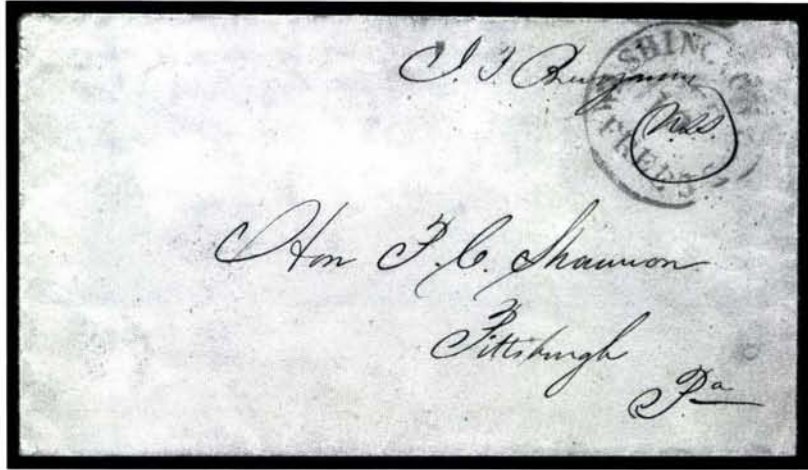 J. F. Benjamin
WASHINGTON
FREE
USS.
Hon P. C. Shannon
Pittsburgh
Pa